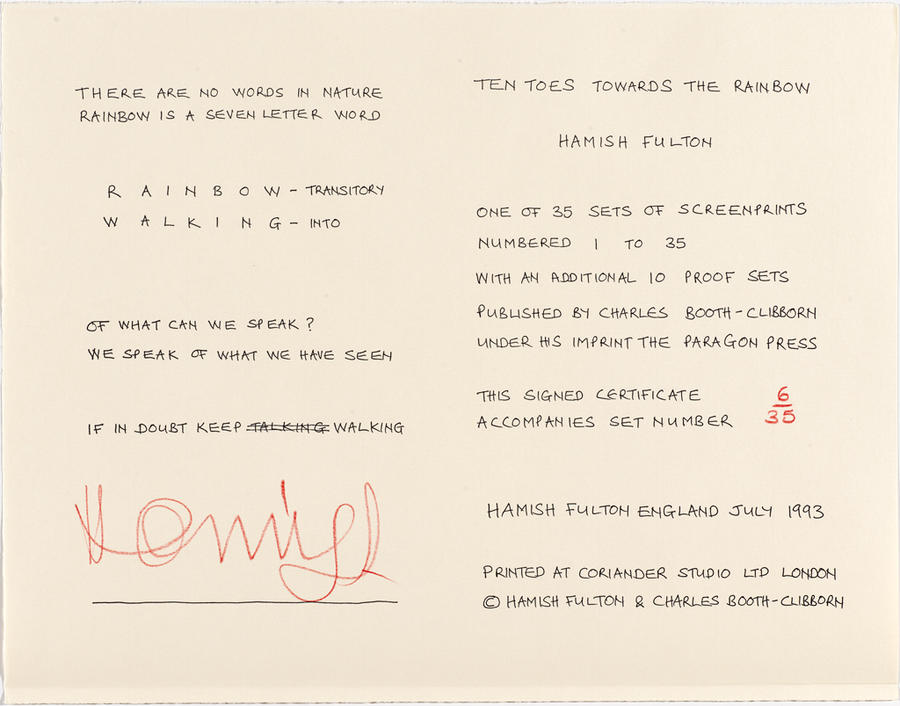 THERE ARE NO WORDS IN NATURE
RAINBOW IS A SEVEN LETTER WORD
R A I N B O W – TRANSITORY
W A L K I N G – INTO
OF WHAT CAN WE SPEAK ?
WE SPEAK OF WHAT WE HAVE SEEN
IF IN DOUBT KEEP TALKING WALKING
Hamish
TEN TOES TOWARDS THE RAINBOW
HAMISH FULTON
ONE OF 35 SETS OF SCREENPRINTS
NUMBERED 1 TO 35
WITH AN ADDITIONAL 10 PROOF SETS
PUBLISHED BY CHARLES BOOTH-CLIBBORN
UNDER HIS IMPRINT THE PARAGON PRESS
THIS SIGNED CERTIFICATE
ACCOMPANIES SET NUMBER 6/35
HAMISH FULTON ENGLAND JULY 1993
PRINTED AT CORIANDER STUDIO LTD LONDON
© HAMISH FULTON & CHARLES BOOTH-CLIBBORN